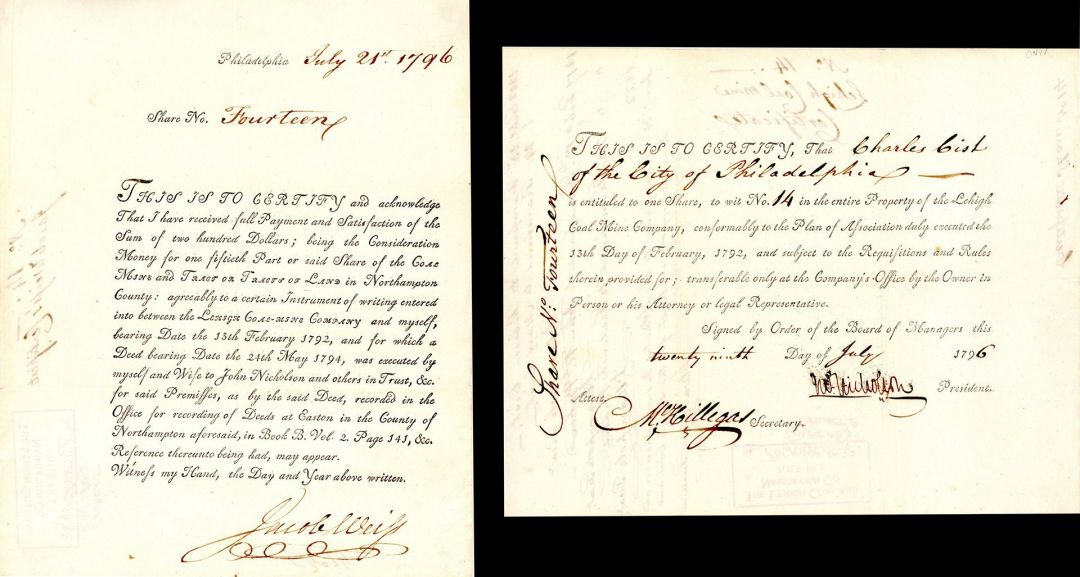 Philadelphia July 21st. 1796
Share No. Fourteen
THIS IS TO CERTIFY and acknowledge
That I have received full Payment and Satisfaction of the
Sum of two hundred Dollars; being the Consideration
Money for one fiftieth Part or said Share of the COAL
MINE and TRACT OR TRACTS OF LAND in Northampton
County: agreeably to a certain Instrument of writing entered
into between the LEHIGH COAL-MINE COMPANY and myself,
bearing Date the 13th February 1792, and for which a
Deed bearing Date the 24th May 1794, was executed by
myself and Wife to John Nicholson and others in Trust, &c.
for said Premisses, as by the said Deed, recorded in the
Office for recording of Deeds at Easton in the County of
Northampton aforesaid, in Book B. Vol. 2. Page 141, &c.
Reference thereunto being had, may appear.
Witness my Hand, the Day and Year above written.
Jacob Weiss
Share No: Fourteen
THIS IS TO CERTIFY, That Charles Cist
of the City of Philadelphia
is entituled to one Share, to wit No. 14 in the entire Property of the Lehigh
Coal Mine Company, conformably to the Plan of Association duly executed the
13th Day of February, 1792, and subject to the Requisitions and Rules
therein provided for; transferable only at the Company's Office by the Owner in
Person or his Attorney or legal Representative.
Signed by Order of the Board of Managers this
twenty ninth Day of July 1796
Jno. Nicholson President.
Attest.
Ml. Hillegas Secretary.